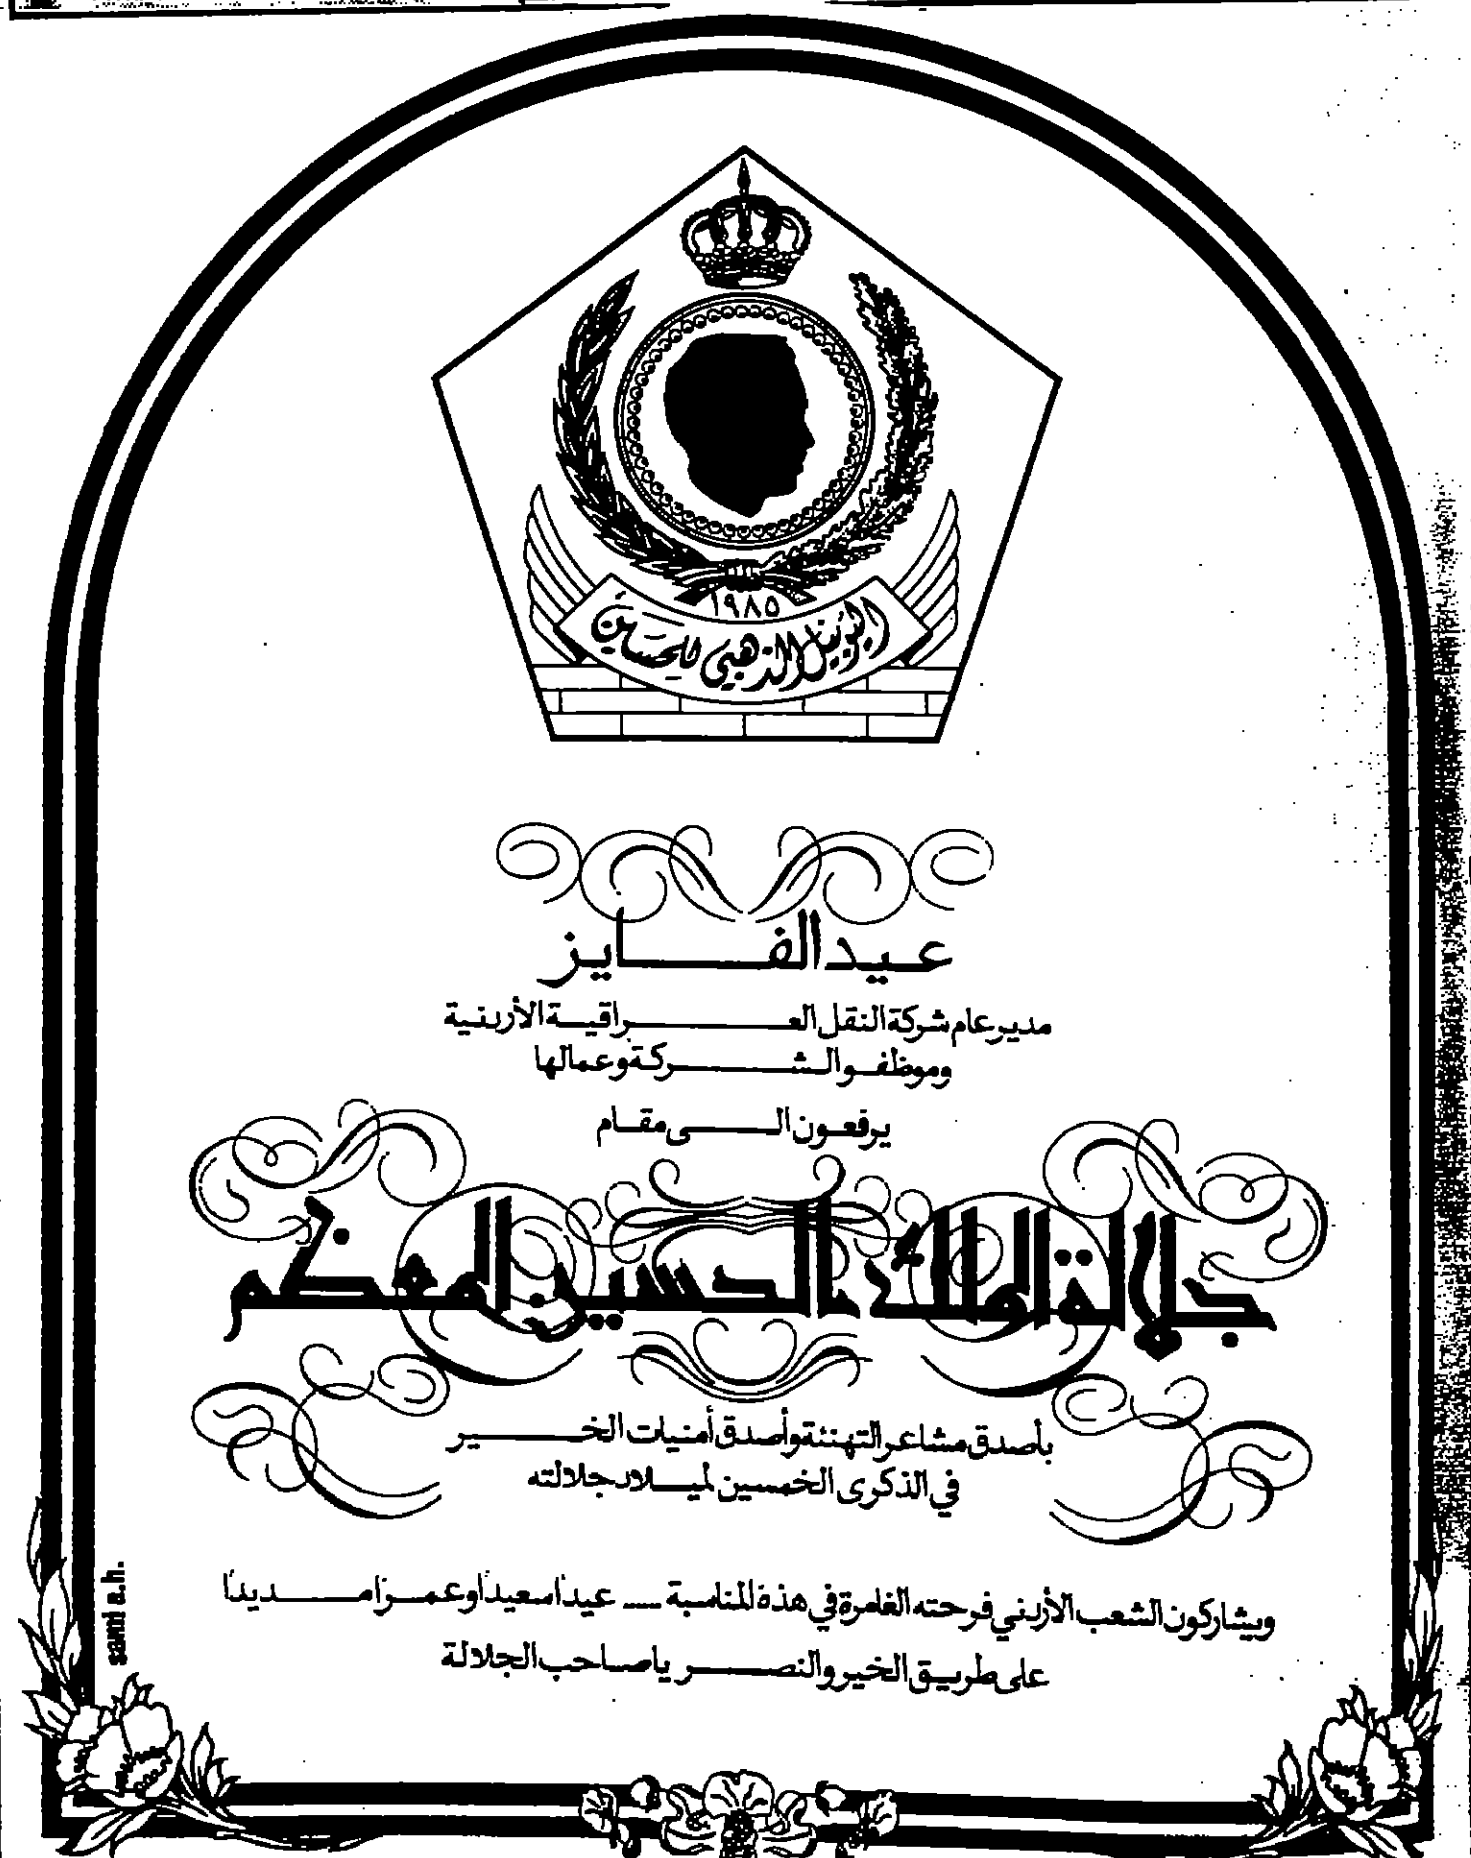 ١٩٨٥
اليوبيل الذهبي للحسين
عيد الفايز
مدير عام شركة النقل العراقية الأردنية
وموظفو الشركة وعمالها
يرفعون الى مقام
جلالة الملك الحسين المعظم
بأصدق مشاعر التهنئة وأصدق أمنيات الخير
في الذكرى الخمسين لميلاد جلالته
ويشاركون الشعب الأردني فرحته الغامرة في هذه المناسبة — عيداً سعيداً وعمراً مديداً
على طريق الخير والنصر يا صاحب الجلالة
sami a.h.